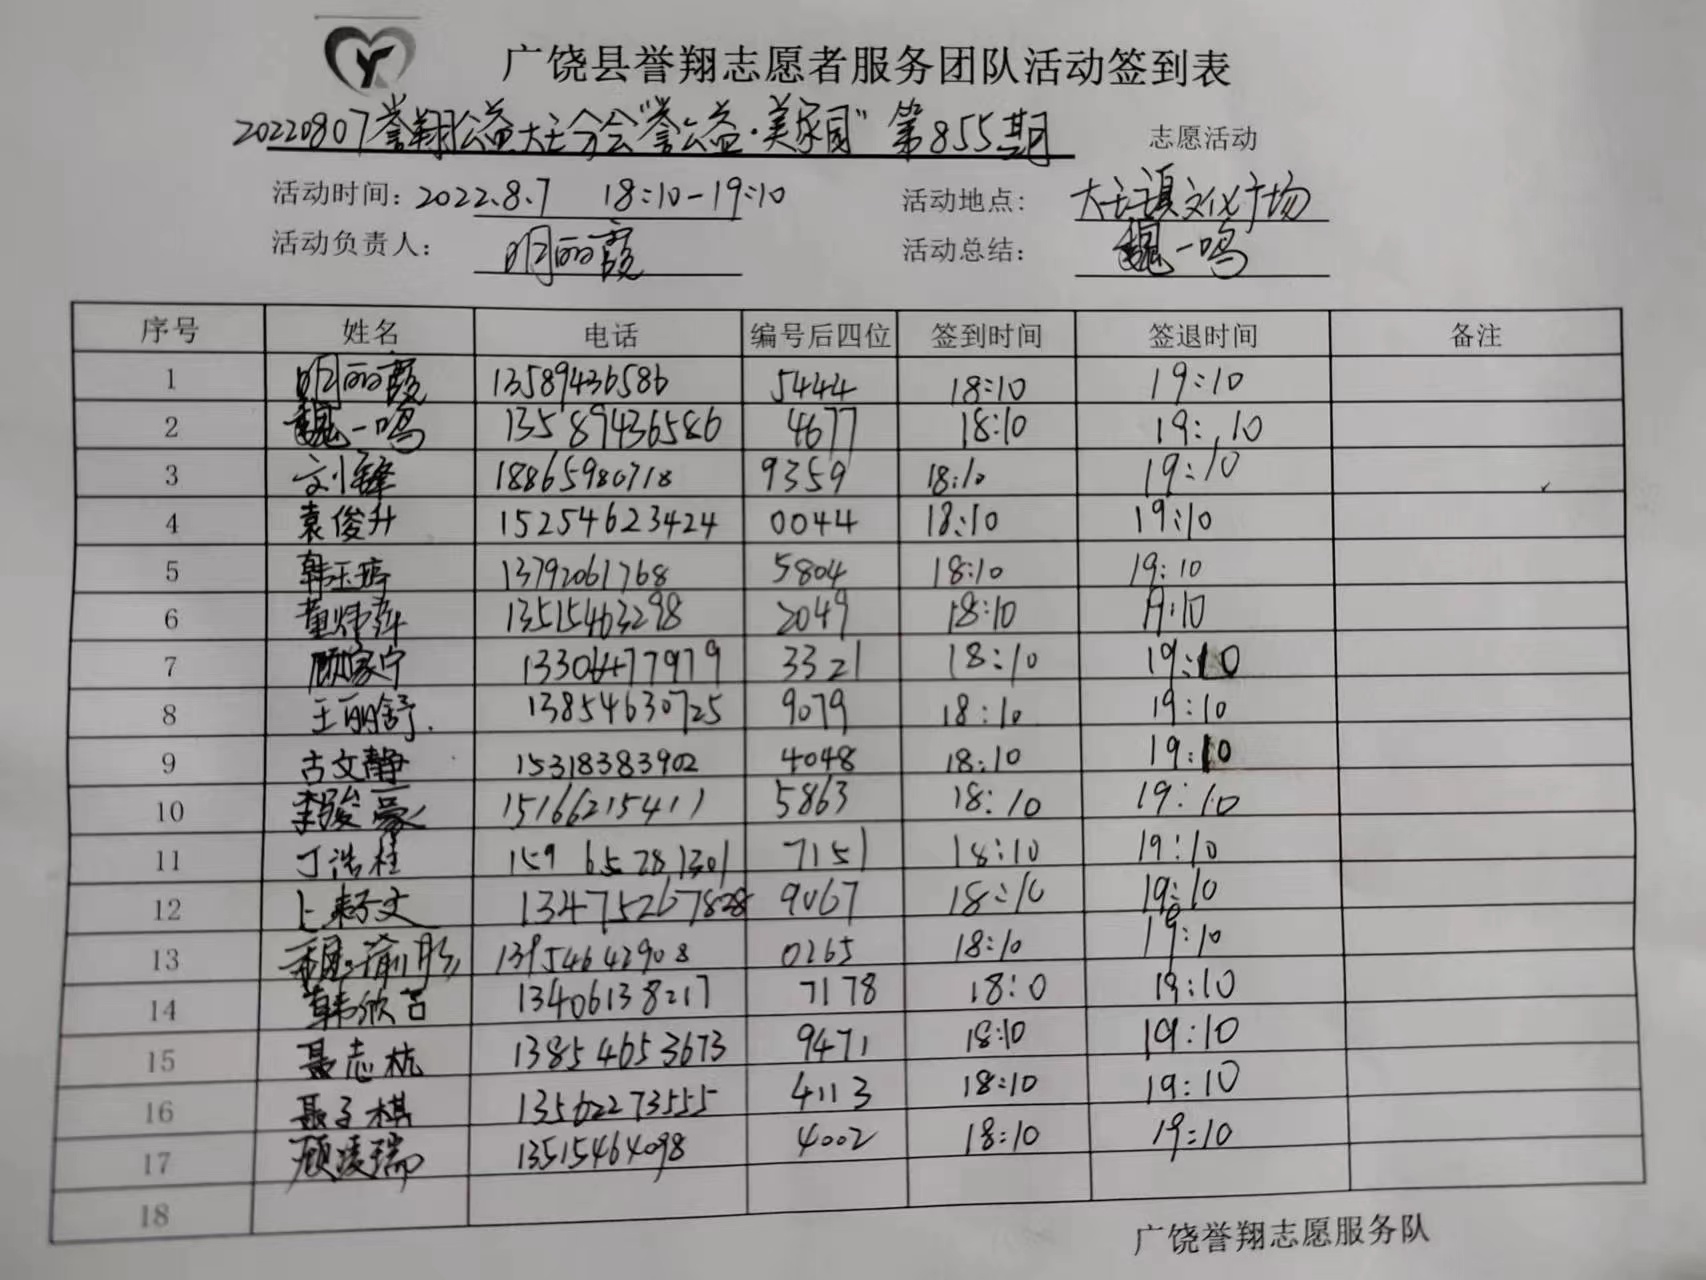 广饶县誉翔志愿者服务团队活动签到表
20220807誉翔公益大王分会"誉公益·美家园"第855期 志愿活动
活动时间: 2022.8.7 18:10-19:10 活动地点: 大王镇文化广场
活动负责人: 明丽霞 活动总结: 魏一鸣
序号 姓名 电话 编号后四位 签到时间 签退时间 备注
1 明丽霞 13589436586 5444 18:10 19:10
2 魏一鸣 13589436586 4677 18:10 19:10
3 刘锋 18865980718 9359 18:10 19:10
4 袁俊升 15254623424 0044 18:10 19:10
5 韩玉琦 13792061768 5804 18:10 19:10
6 董炜萍 13515463298 2049 18:10 19:10
7 顾家宁 13306477979 3321 18:10 19:10
8 王丽舒. 13854630725 9079 18:10 19:10
9 古文静 15318383902 4048 18:10 19:10
10 李骏豪 15166215411 5863 18:10 19:10
11 丁浩桂 159 6528,1301 7151 18:10 19:10
12 134752678 9067 18:10 19:10
13 13954642908 0265 18:10 19:10
14 韩欣言 13406138217 7178 18:0 19:10
15 聂志杭 13854653673 9471 18:10 19:10
16 聂子棋 13562273555 4113 18:10 19:10
17 顾凌瑞 13515464098 4002 18:10 19:10
18
广饶誉翔志愿服务队